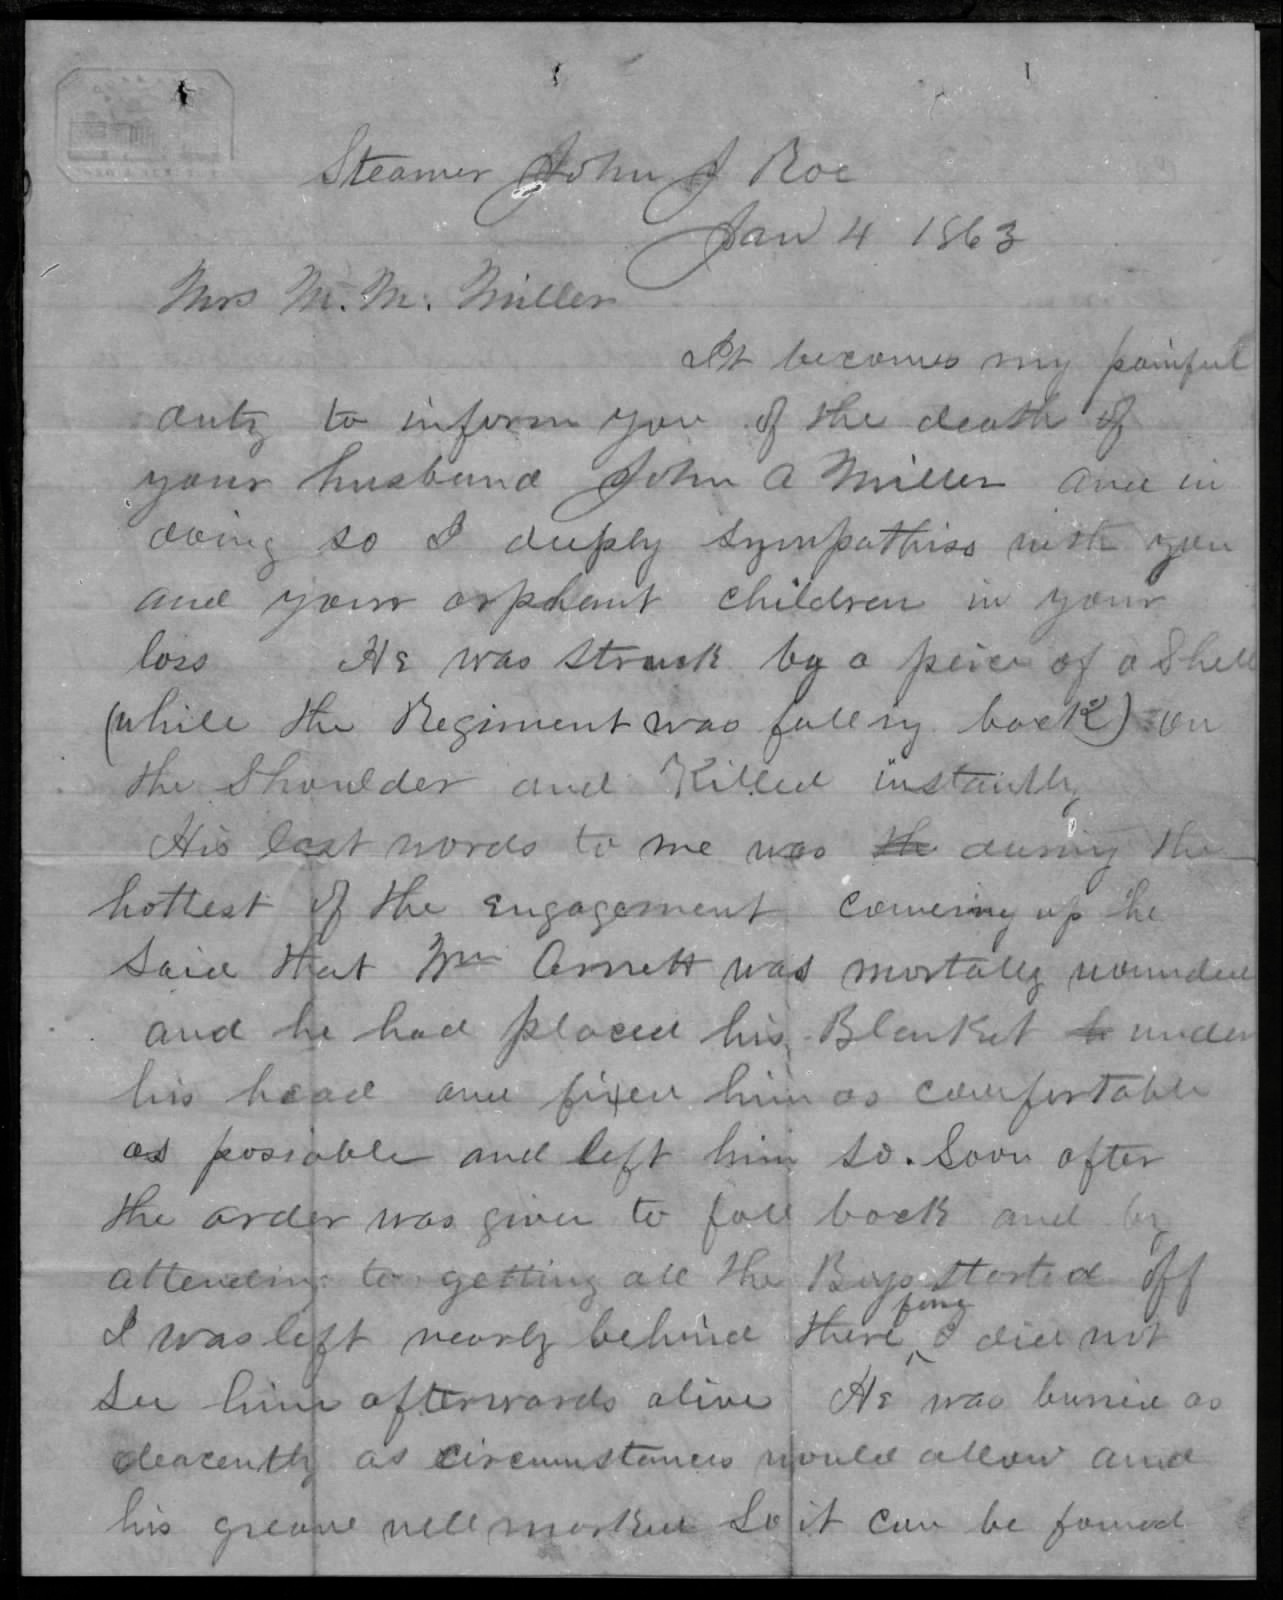 Steamer John J Roe
Jan 4 1863
Mrs M. M. Miller
It becomes my painful
duty to inform you of the death of
your husband John A Miller and in
doing so I deeply sympathiss with you
and your orphant children in your
loss He was struck by a peice of a Shell
(while the Regiment was falling back) on
the Shoulder and Killed instantly
His last words to me was the during the
hottest of the engagement comeing up he
Said that Wm Arnett was mortaly wounded
and he had placed his Blanket under
his head and fixed him as comfortable
as possable and left him so. Soon after
the order was given to fall back and by
attending to getting all the Boys started off
I was left nearly behind there fore I did not
See him afterwards alive He was burried as
deacently as circumstances would allow and
his greave well marked So it can be found